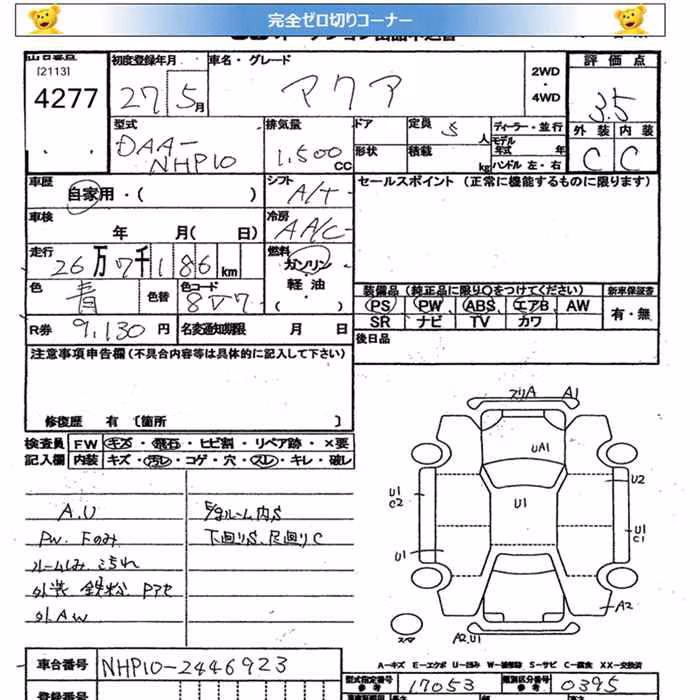 完全ゼロ切りコーナー
[2113]
4277
初度登録年月
27 5月
車名・グレード
アクア
2WD
・
4WD
評価点
3.5
外装 内装
C C
型式
DAA-
NHP10
排気量
1,500
CC
ドア
定員 5 人
ディーラー・並行
モデル
年式 年
形状
積載 kg
ハンドル 左・右
車歴
自家用・( )
シフト
A/T
セールスポイント (正常に機能するものに限ります)
車検
年 月( 日)
冷房
AAC
走行
26万7千186km
燃料
ガソリン
・
軽油
・
( )
色
青
色替
色コード
8V7
装備品 (純正品に限り○をつけてください)
新車保証書
PS PW ABS エアB AW
SR ナビ TV カワ
有・無
R券 9,130円
名変通知期限 月 日
後日品
注意事項申告欄 (不具合内容等は具体的に記入して下さい)
修復歴 有 〔箇所 〕
検査員
記入欄
FW キズ・飛石・ヒビ割・リペア跡・×要
内装 キズ・汚レ・コゲ・穴・スレ・キレ・破レ
A.U
PW. Fのみ
ルームしみ こられ
外.AW
下回りS、足回りC
A1
UA1
U1
C2
U2
U1
U1
C1
U1
A2
A2.U1
A-キズ E-エクボ U-凹み W-補修跡 S-サビ C-腐食 XX-交換済
車台番号 NHP10-2446923
型式指定番号
参考
17053
類別区分番号
参考
0395
登録番号